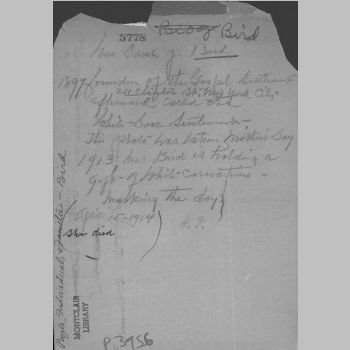 Biog Bird
5778
Mrs. Sarah J. Bird
1897 founder of the Gospel Settlement
211 Clinton St. New York City -
afterward called the
White-Door Settlement -
This photo was taken Mother's Day
1913 Mrs Bird is holding a
gift of White Carnations -
marking the day
(April 15-1914)
She died
H. F.
People, Individuals & Families - Bird
MONTCLAIR
LIBRARY
p.3956